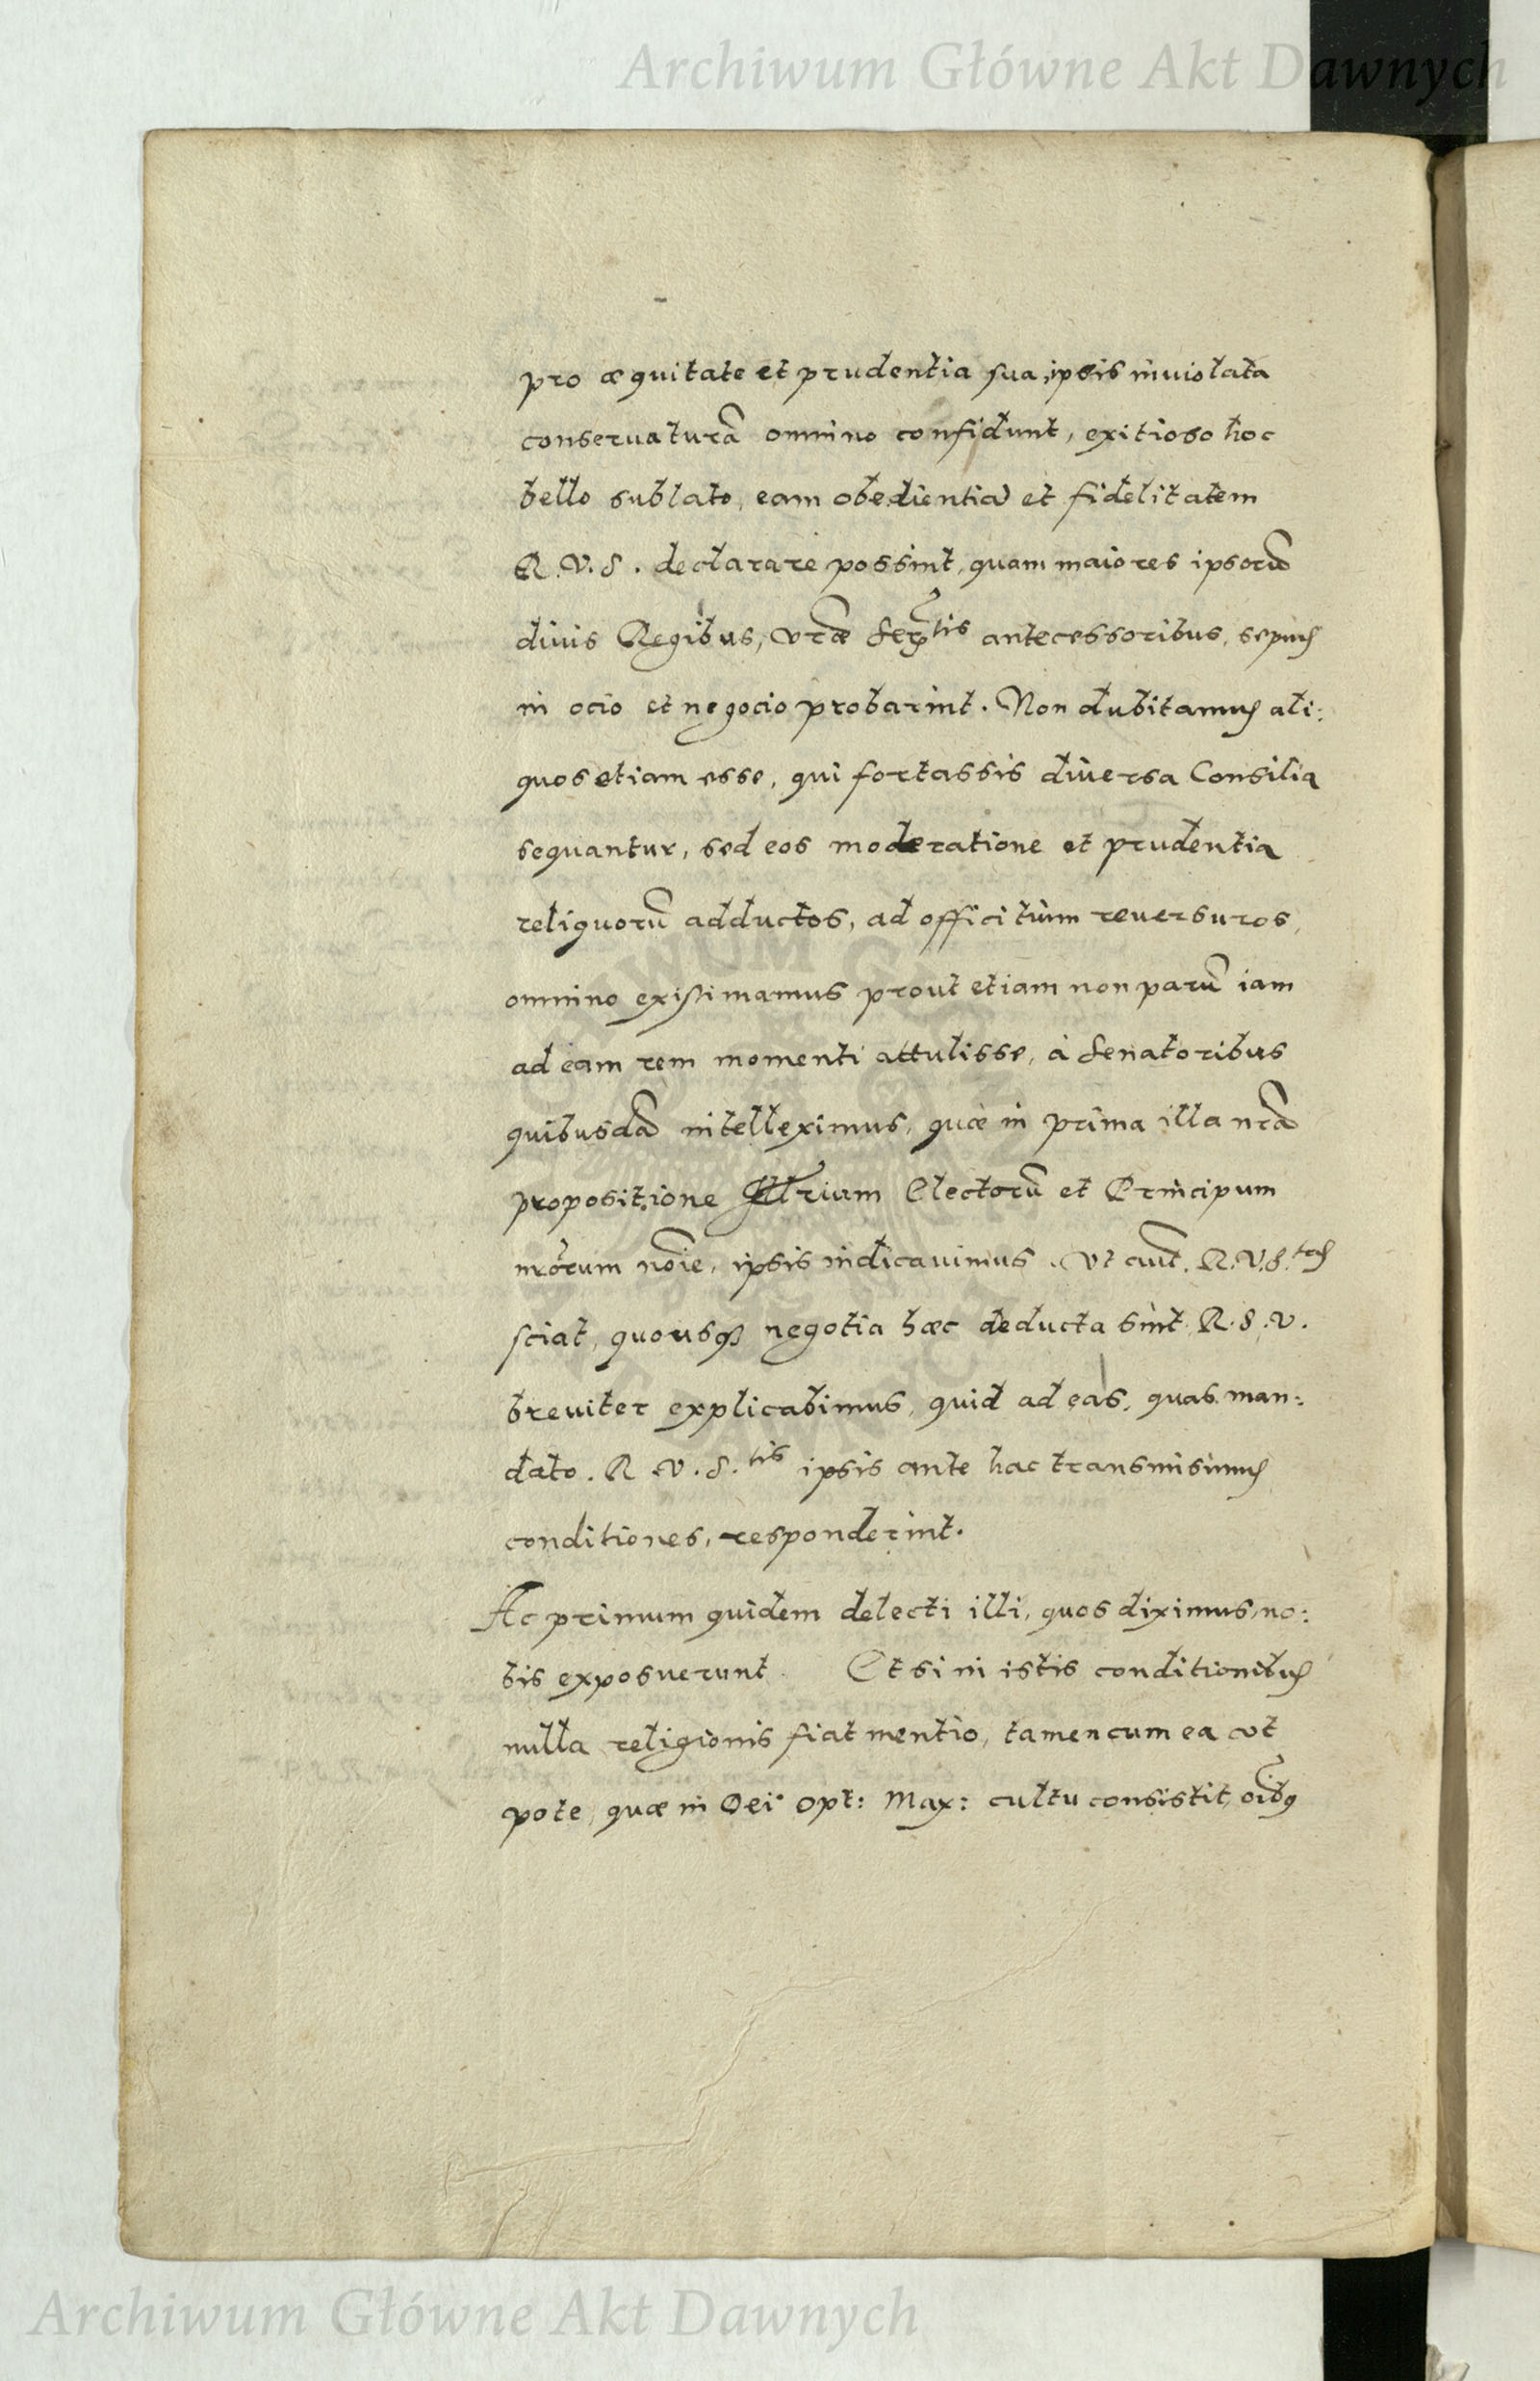 Archiwum Główne Akt Dawnych
pro æquitate et prudentia sua, ipsis inuiolata
conseruaturã omnino confidunt, exitioso hoc
bello sublato, eam obedientiã et fidelitatem
R. V. S. declarare possint, quam maiores ipsorũ
diuis Regibus, vr̃æ Ser.tis antecessoribus, sepius
in ocio et negocio probarint. Non dubitamus ali:
quos etiam esse, qui fortassis diuersa Consilia
sequantur, sed eos moderatione et prudentia
reliquorũ adductos, ad officitium reuersuros,
omnino existimamus prout etiam non parũ iam
ad eam rem momenti attulisse, à Senatoribus
quibusdã intelleximus, quæ in prima illa nr̃a
propositione Illrium Electorũ et Principum
nr̃orum noĩe, ipsis indicauimus. Vt aũt. R. V. S.tas
sciat, quousq; negotia hæc deducta sint R. S. V.
breuiter explicabimus, quid ad eas, quas man:
dato. R. V. S.tis ipsis ante hac transmisimus
conditiones, responderint.
Ac primum quidem delecti illi, quos diximus, no:
bis exposuerunt. Et si in istis conditionibus
nulla religionis fiat mentio, tamen cum ea vt
pote, quæ in Dei Opt: Max: cultu consistit, oĩbus
Archiwum Główne Akt Dawnych